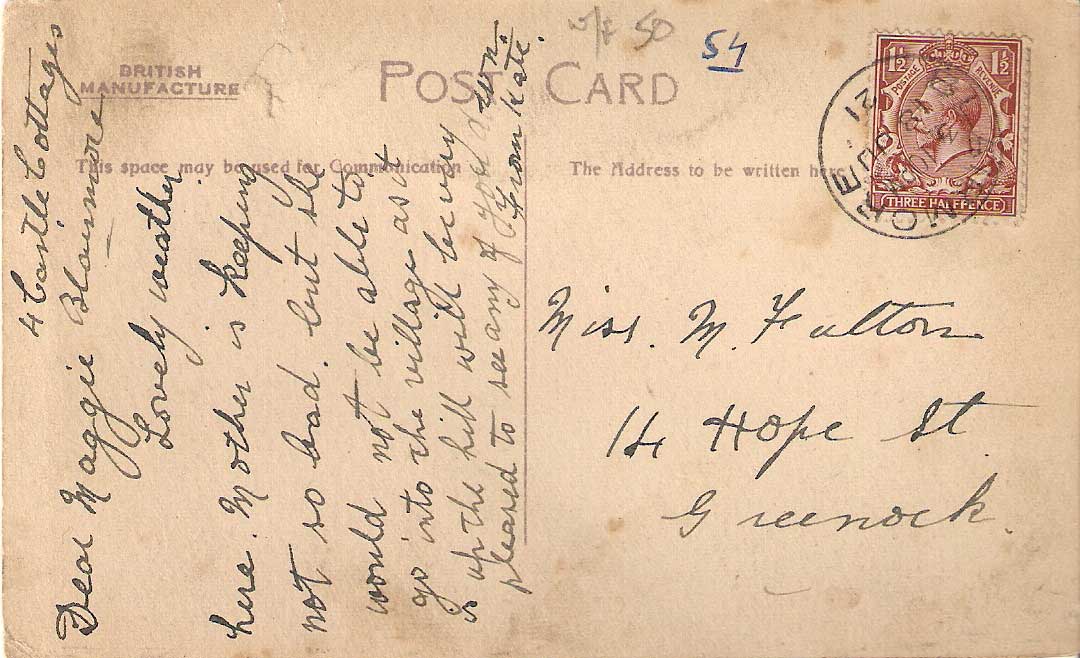 BRITISH
MANUFACTURE
POST CARD
W/E 50
54
This space may be used for Communication
The Address to be written here
1½ 1½
POSTAGE REVENUE
THREE HALFPENCE
4 Castle Cottages
Blairmore
Dear Maggie
Lovely weather
here. Mother is keeping
not so bad. but she
would not be able to
go into the village as it
is up the hill will be very
pleased to see any of you down.
From Kate.
Miss. M. Fulton
14 Hope St
Greenock.